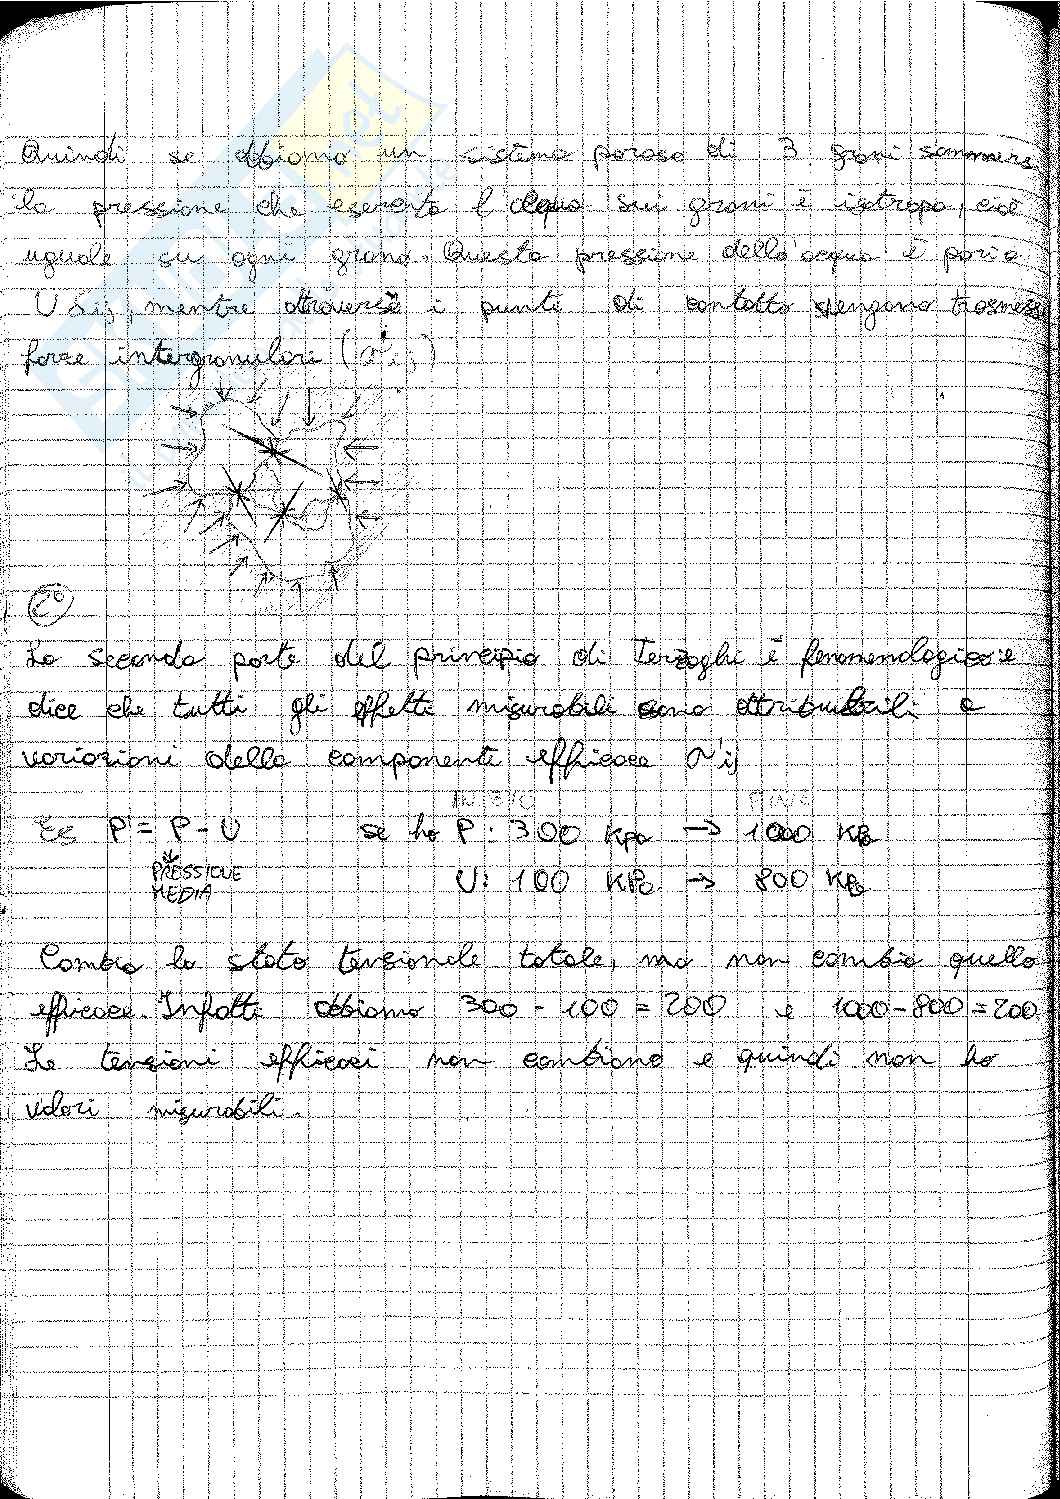 Quindi se abbiamo un sistema poroso di 3 grani sommersi
la pressione che esercita l'acqua sui grani è isotropa, cioè
uguale su ogni grano. Questa pressione dell'acqua è pari a
U δij, mentre attraverso i punti di contatto vengono trasmesse
forze intergranulari (σ'ij)
2°
La seconda parte del principio di Terzaghi è fenomenologica e
dice che tutti gli effetti misurabili sono attribuibili a
variazioni della componente efficace σ'ij
INIZIO FINE
Es P' = P - U se ho P: 300 KPa → 1000 KPa
PRESSIONE
MEDIA
U: 100 KPa → 800 KPa
Cambia lo stato tensionale totale, ma non cambia quello
efficace. Infatti abbiamo 300 - 100 = 200 e 1000 - 800 = 200
Le tensioni efficaci non cambiano e quindi non ho
valori misurabili.